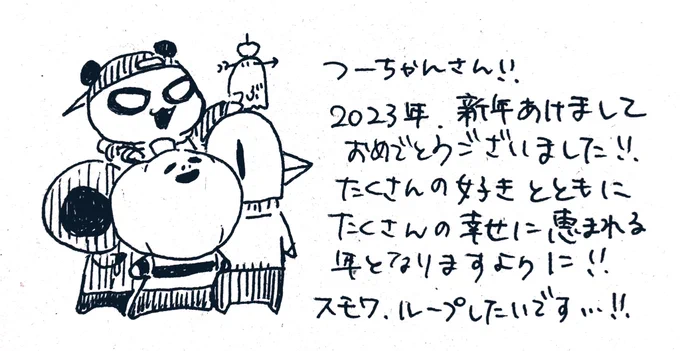 つーちゃんさん!!
2023年、新年あけまして
おめでとうございました!!
たくさんの好きとともに
たくさんの幸せに恵まれる
年となりますように!!
スモワ、ループしたいです…!!